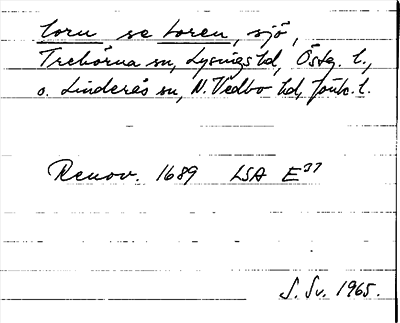 Loren se Loren, sjö,
Trehörna sn, Lysings hd, Östg. l.,
o. Linderås sn, N. Vedbo hd, Jönk. l.
Renov. 1689 LSA E37
S. Sv. 1965.